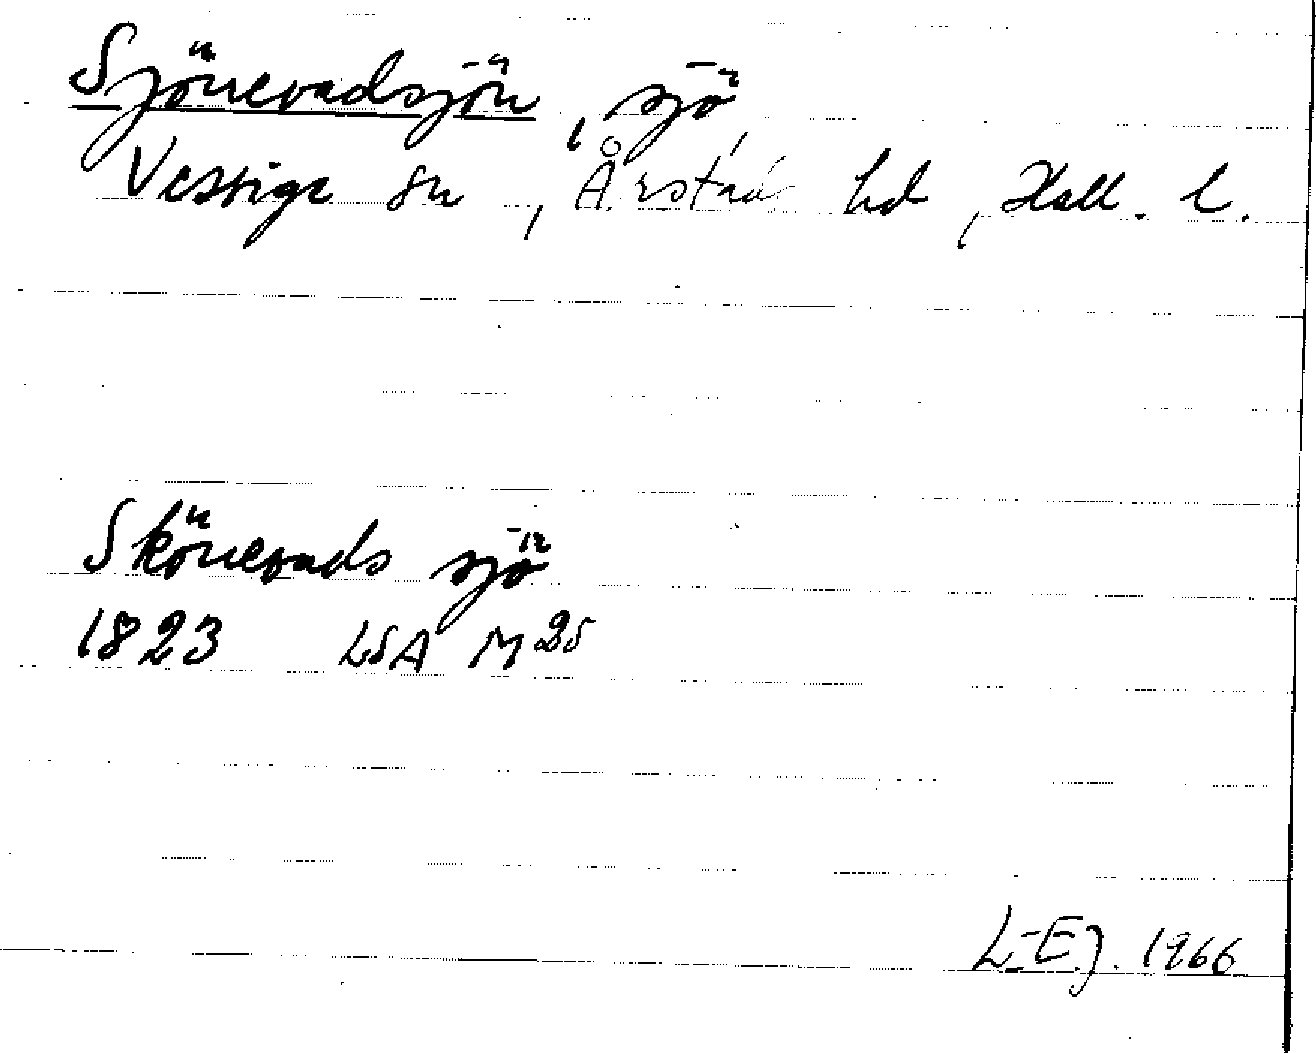 Sjönevadsjön, sjö
Vessige sn, Årstad hd, Hall. l.
Skönevads sjö
1823 LSA M25
L-E.J. 1966